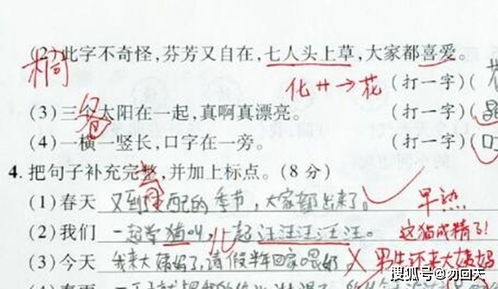 (2)此字不奇怪，芬芳又自在，七人头上草，大家都喜爱。
化艹→花 (打一字)(
(3)三个太阳在一起，真啊真漂亮。 (打一字)(晶
(4)一横一竖长，口字在一旁。 (打一字)(
4.把句子补充完整，并加上标点。(8分)
(1)春天 又到交配的季节，大家都出来了。 早熟
(2)我们 一起学猫叫，一起汪汪汪汪汪。 这猫成精了!
(3)今天 我来大姨妈了，请假半年回家喂奶 男生还来大姨妈
搜狐号@勿回天